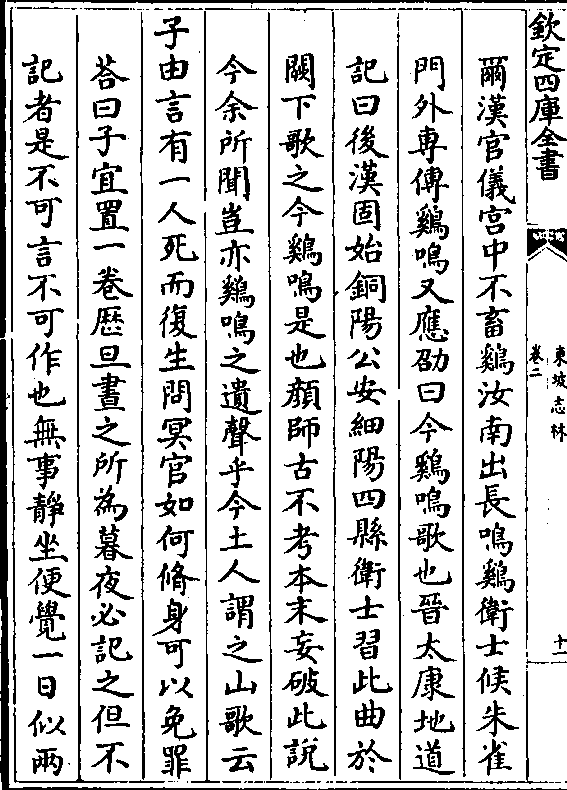 欽定四庫全書
東坡志林
卷二
十一
爾漢官儀宮中不畜鷄汝南出長鳴鷄衛士候朱雀
門外專傳鷄鳴又應劭曰今鷄鳴歌也晉太康地道
記曰後漢固始銅陽公安細陽四縣衛士習此曲於
闕下歌之今鷄鳴是也顔師古不考本末妄破此說
今余所聞豈亦鷄鳴之遺聲乎今土人謂之山歌云
子由言有一人死而復生問冥官如何脩身可以免罪
荅曰子宜置一卷歷旦晝之所為暮夜必記之但不
記者是不可言不可作也無事靜坐便覺一日似兩